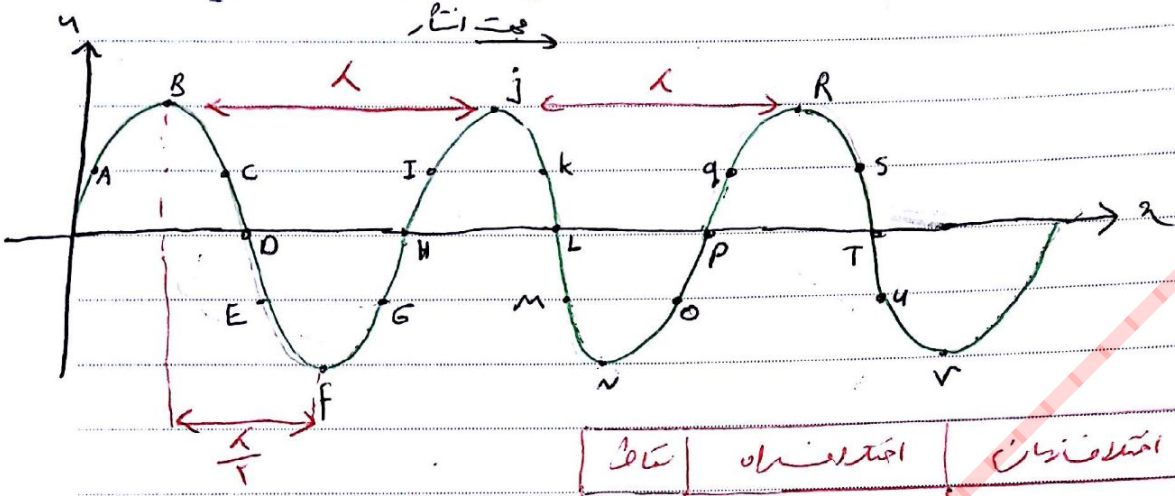 جهت انتشار
u
B λ j λ R
A C I k q S
D H L P T x
E G M O u
F N V
λ/۲
نقاط اختلاف راه اختلاف زمان